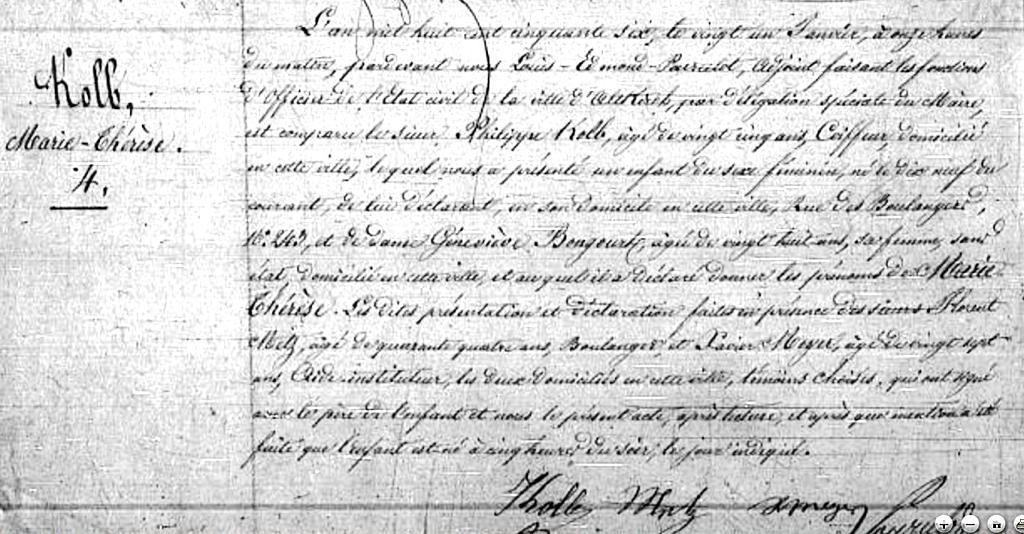 Kolb,
Marie-Thérèse.
4.
L'an mil huit cent cinquante six, le vingt un Janvier, à onze heures
du matin, pardevant nous Louis-Edmond, Adjoint faisant les fonctions
d'Officier de l'Etat civil de la ville d'Altkirch, par délégation spéciale du Maire,
est comparu le sieur Philippe Kolb, âgé de vingt cinq ans, Coiffeur, domicilié
en cette ville, lequel nous a présenté un enfant du sexe féminin, né le dix neuf du
courant, de lui déclarant, en son domicile en cette ville, Rue des Boulangers,
No. 243, et de dame Géneviève Bongourt, âgée de vingt huit ans, sa femme, sans
état, domiciliée en cette ville, et auquel il a déclaré donner les prénoms de Marie
Thérèse. Les dites présentation et déclaration faites en présence des sieurs Florent
Metz, âgé de quarante quatre ans, Boulanger, et Xavier Meyer, âgé de vingt sept
ans, Aide-instituteur, les deux domiciliés en cette ville, témoins choisis, qui ont signé
avec le père de l'enfant et nous le présent acte, après lecture, et après que mention a été
faite que l'enfant est né à cinq heures du soir, le jour indiqué.
Kolb Metz Xmeyer